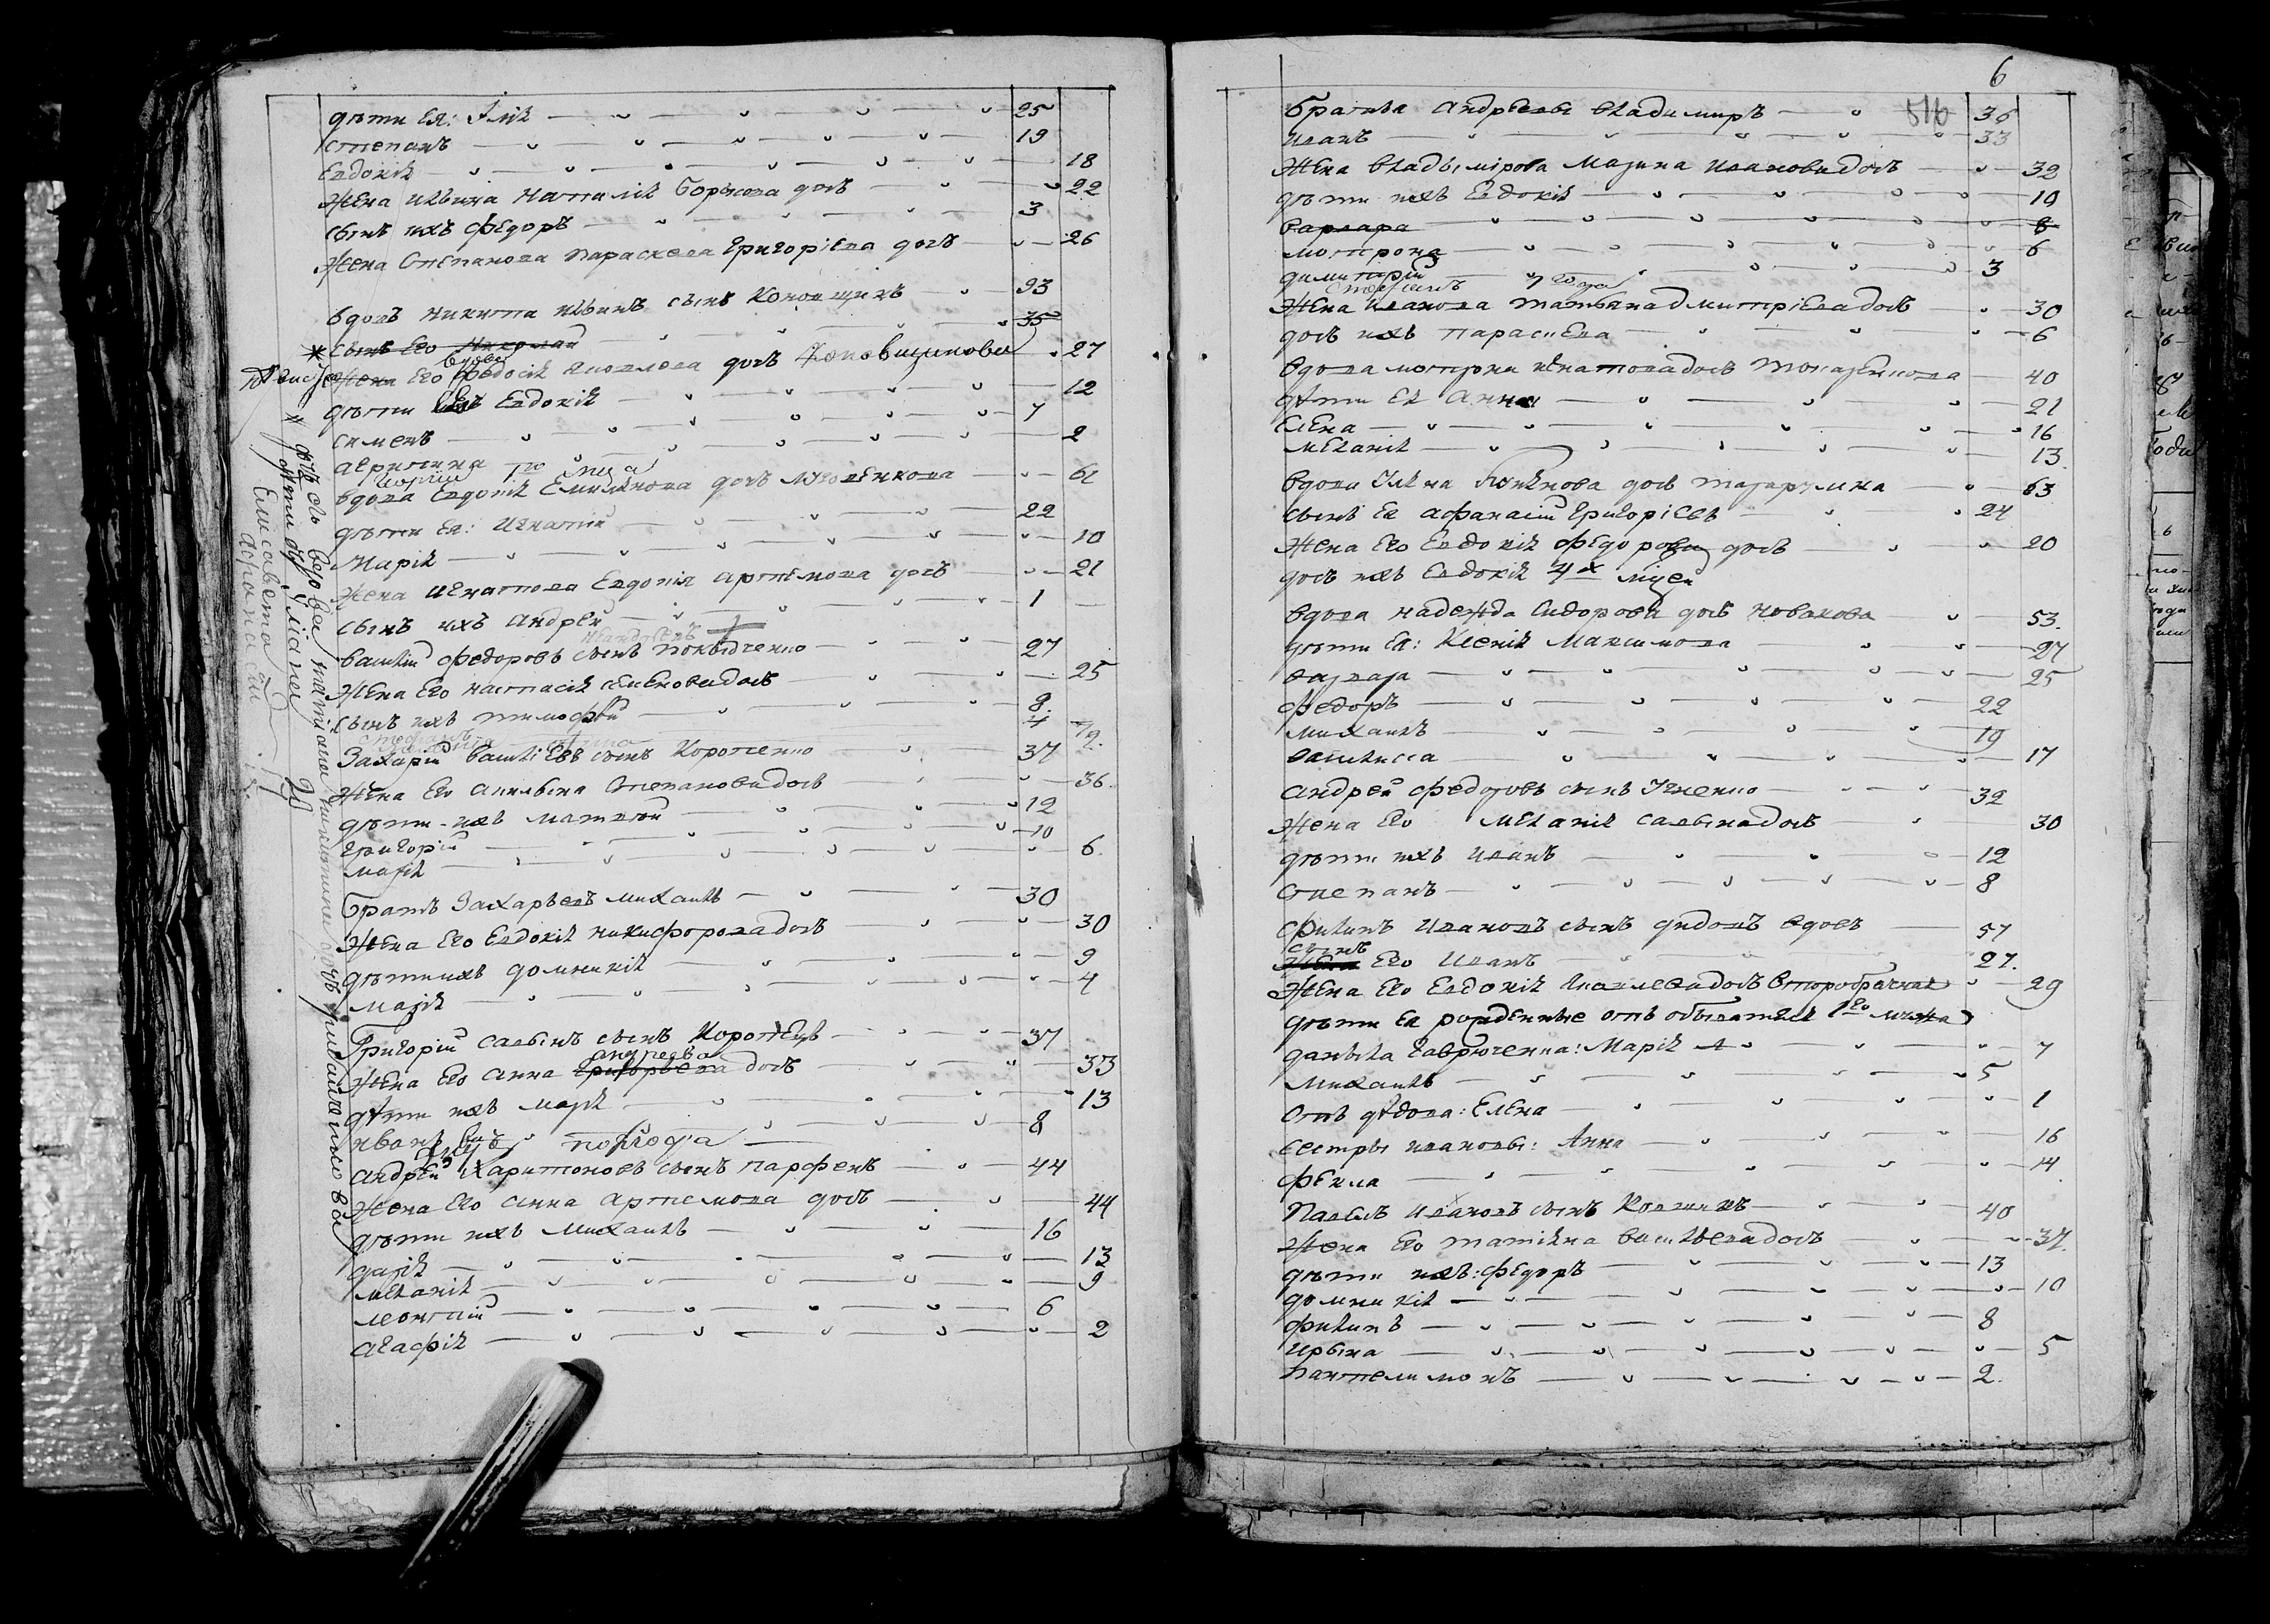 дѣти Ея: Илія 25
Степанъ 19
Евдокія 18
Жена Ильина Наталія Борисова дочъ 22
Сынъ ихъ Федоръ 3
Жена Степанова Параскева Григоріева дочъ 26
вдовъ Никита Ильинъ сынъ Коновщикъ 93
Сынъ Его Николай 35
вдова
Жена Его Федосія Яковлева дочъ Коновщикова 27
дѣти Евдокія 12
Сименъ 7
Агрипина 2
вдова Евдокія Емиліянова дочъ 61
дѣти Ея: Игнатій 22
Марія 10
Жена Игнатова Евдокія Артемова дочъ 21
Сынъ ихъ Андрей 1
Василій Федоровъ сынъ 27
Жена Его Настасія Семенова дочъ 25
Сынъ ихъ Тимофей 8
Захарій Василіевъ сынъ Коротенко 37
Жена Его Акилина Степанова дочъ 36
дѣти ихъ Матвей 12
Григорій 10
Марія 6
Братъ Захарьевъ Михаилъ 30
Жена Его Евдокія Никифорова дочъ 30
дѣти ихъ Домникія 9
Марія 4
Григорій Савинъ сынъ Коротецъ 37
андреева
Жена Его Анна Григорьева дочъ 33
дѣти ихъ Марія 13
Иванъ 8
Андрей Харитоновъ сынъ Парфенъ 44
Жена Его Анна Артемова дочъ 44
дѣти ихъ Михаилъ 16
Дарія 13
Меланія 9
Леонтій 6
Агафія 2
6
516
Братья Андреевы Владимиръ 36
Иванъ 33
Жена Владымірова Марина Иванова дочъ 32
дѣти ихъ Евдокія 10
Варвара 8
Мотрона 6
Димитрій 3
Жена Иванова Татьяна Дмитріева дочъ 30
дочъ ихъ Параскева 6
Вдова Мотрона Игнатова дочъ 40
дѣти Ея Анна 21
Елена 16
Меланія 13
Вдова дочъ 63
сынъ Ея Афанасій Григоріевъ 24
Жена Его Евдокія Федорова дочъ 20
дочъ ихъ Евдокія 4х
Вдова Надежда Сидорова дочъ Новакова 53
дѣти Ея: Ксенія Максимова 27
Варвара 25
Федоръ 22
Михаилъ 19
Василиса 17
Андрей Федоровъ сынъ 32
Жена Его Меланія Савына дочъ 30
дѣти ихъ Иванъ 12
Степанъ 8
Филипъ Ивановъ сынъ Дидовъ вдовъ 57
сынъ
Жена Его Иванъ 27
Жена Его Евдокія Яковлева дочъ второбрачная 29
дѣти Ея рожденные отъ обывателя 1го мужа
Данила Гаврюченка: Марія 7
Михаилъ 5
Отъ Дѣдова: Елена 1
Сестры Ивановы: Анна 16
Фекла 14
Павелъ Ивановъ сынъ 40
Жена Его Татіяна Василіева дочъ 37
дѣти ихъ: Федоръ 13
Домникія 10
Филипъ 8
Ирына 5
Пантелимонъ 2